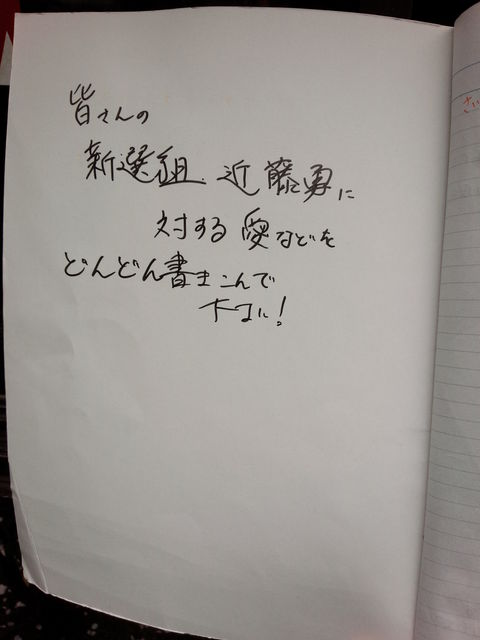 皆さんの
新選組、近藤勇に
対する愛などを
どんどん書きこんで
下さい!
さい